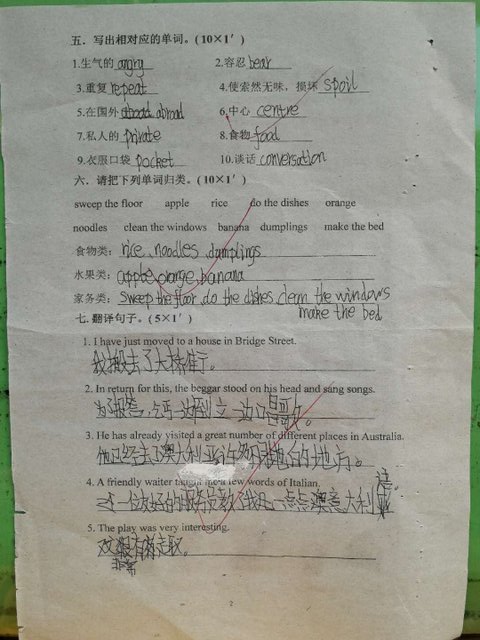 五．写出相对应的单词。(10×1′)
1.生气的 angry 2.容忍 bear
3.重复 repeat 4.使索然无味，损坏 spoil
5.在国外 abroad 6.中心 centre
7.私人的 private 8.食物 food
9.衣服口袋 pocket 10.谈话 conversation
六．请把下列单词归类。(10×1′)
sweep the floor apple rice do the dishes orange
noodles clean the windows banana dumplings make the bed
食物类: rice、noodles、dumplings
水果类: apple、orange、banana
家务类: sweep the floor、do the dishes、clean the windows
make the bed
七.翻译句子。(5×1′)
1. I have just moved to a house in Bridge Street.
我搬去了大桥街。
2. In return for this, the beggar stood on his head and sang songs.
为了报答，乞丐一边倒立一边唱歌。
3. He has already visited a great number of different places in Australia.
他已经去过澳大利亚许多的地方。
4. A friendly waiter taught me a few words of Italian.
一位友好的服务员教了我几一点点意大利语。
5. The play was very interesting.
戏很有趣。
非常
2